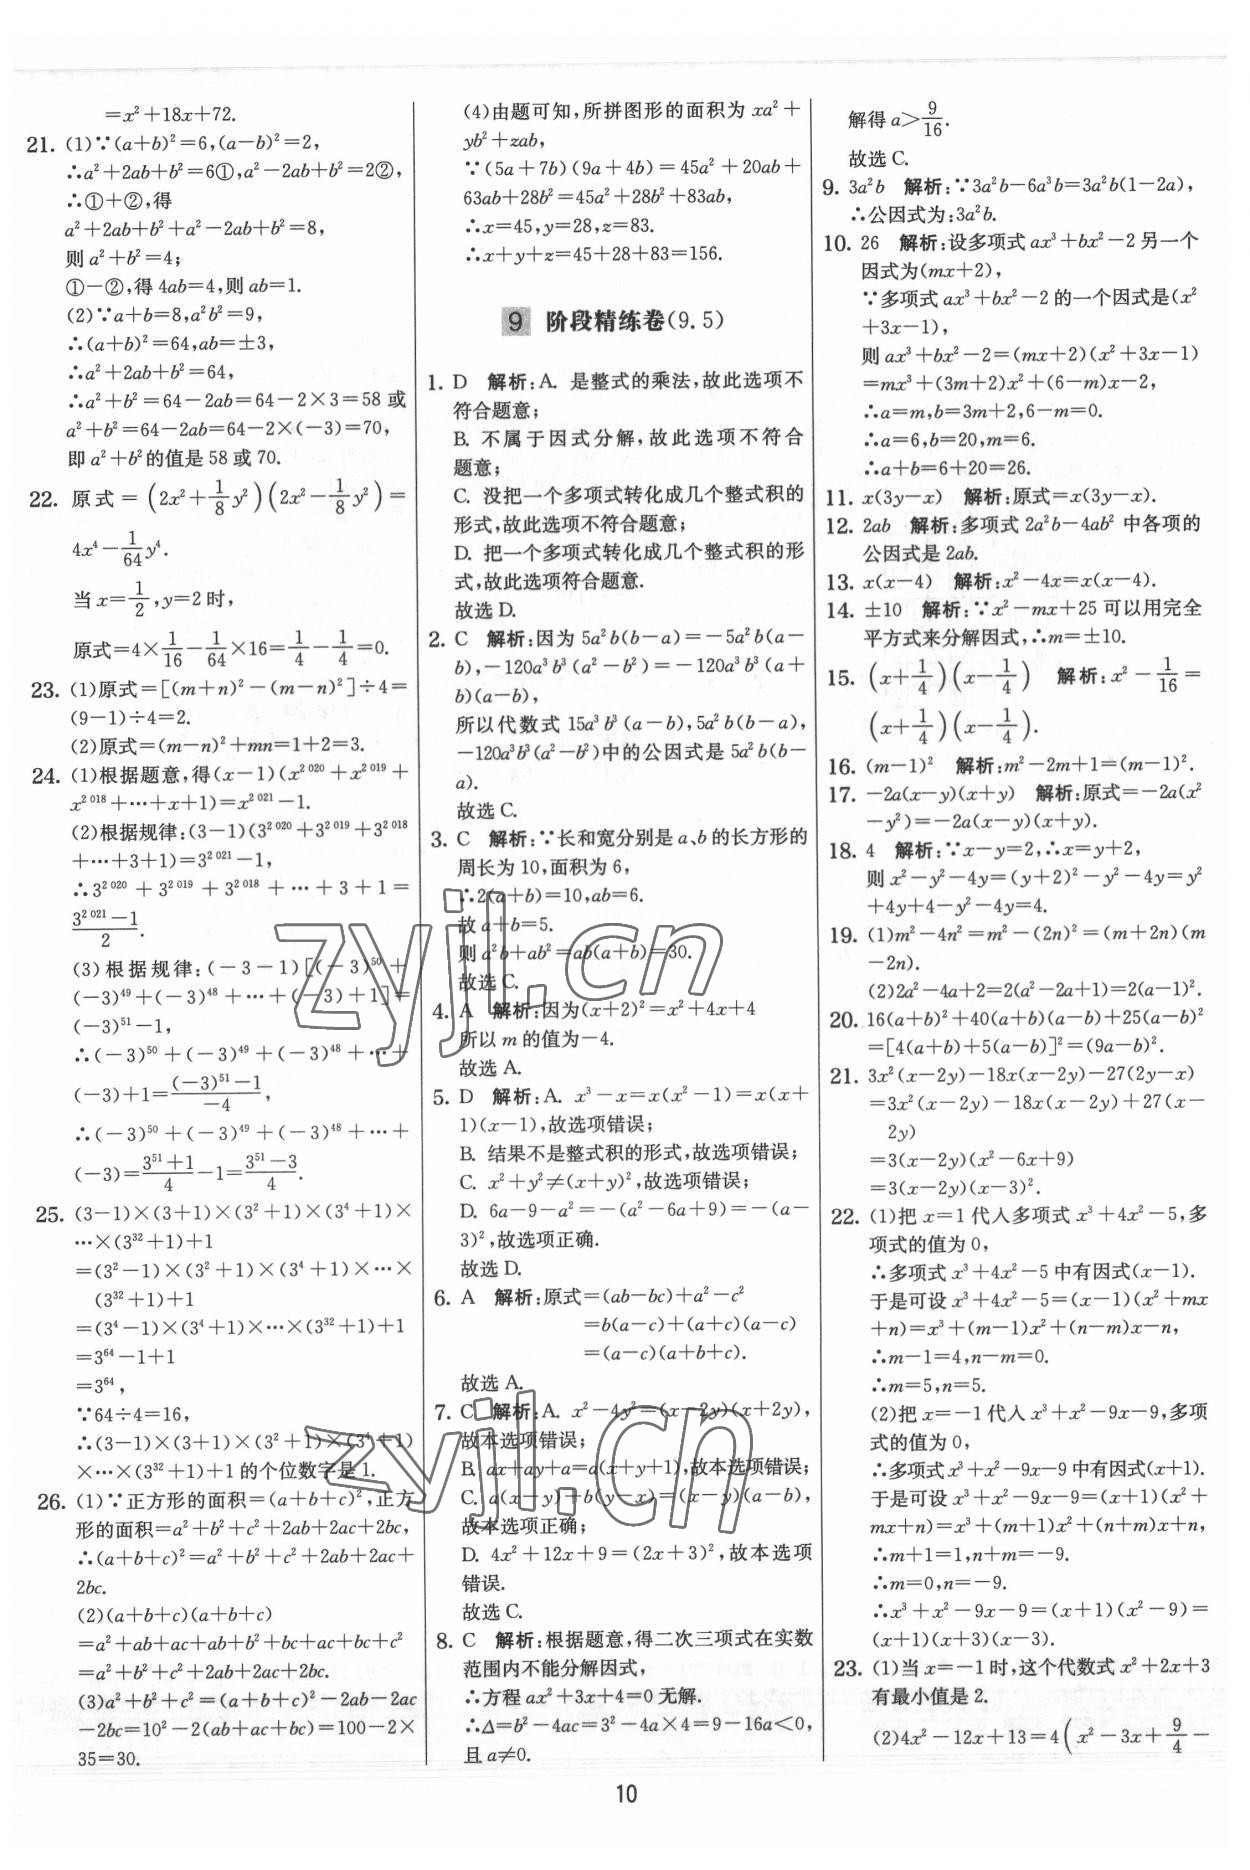 =x²+18x+72.
21. (1)∵(a+b)²=6,(a-b)²=2,
∴a²+2ab+b²=6①,a²-2ab+b²=2②,
∴①+②,得
a²+2ab+b²+a²-2ab+b²=8,
则 a²+b²=4;
①-②,得 4ab=4,则 ab=1.
(2)∵a+b=8,a²b²=9,
∴(a+b)²=64,ab=±3,
∴a²+2ab+b²=64,
∴a²+b²=64-2ab=64-2×3=58 或
a²+b²=64-2ab=64-2×(-3)=70,
即 a²+b² 的值是 58 或 70.
22. 原式=(2x²+1/8y²)(2x²-1/8y²)=
4x⁴-1/64y⁴.
当 x=1/2,y=2 时,
原式=4×1/16-1/64×16=1/4-1/4=0.
23. (1)原式=[(m+n)²-(m-n)²]÷4=
(9-1)÷4=2.
(2)原式=(m-n)²+mn=1+2=3.
24. (1)根据题意,得(x-1)(x²⁰²⁰+x²⁰¹⁹+
x²⁰¹⁸+…+x+1)=x²⁰²¹-1.
(2)根据规律:(3-1)(3²⁰²⁰+3²⁰¹⁹+3²⁰¹⁸
+…+3+1)=3²⁰²¹-1,
∴3²⁰²⁰+3²⁰¹⁹+3²⁰¹⁸+…+3+1=
(3²⁰²¹-1)/2.
(3)根据规律:(-3-1)[(-3)⁵⁰+
(-3)⁴⁹+(-3)⁴⁸+…+(-3)+1]=
(-3)⁵¹-1,
∴(-3)⁵⁰+(-3)⁴⁹+(-3)⁴⁸+…+
(-3)+1=((-3)⁵¹-1)/-4,
∴(-3)⁵⁰+(-3)⁴⁹+(-3)⁴⁸+…+
(-3)=(3⁵¹+1)/4-1=(3⁵¹-3)/4.
25. (3-1)×(3+1)×(3²+1)×(3⁴+1)×
…×(3³²+1)+1
=(3²-1)×(3²+1)×(3⁴+1)×…×
(3³²+1)+1
=(3⁴-1)×(3⁴+1)×…×(3³²+1)+1
=3⁶⁴-1+1
=3⁶⁴,
∵64÷4=16,
∴(3-1)×(3+1)×(3²+1)×(3⁴+1)
×…×(3³²+1)+1 的个位数字是 1.
26. (1)∵正方形的面积=(a+b+c)²,正方
形的面积=a²+b²+c²+2ab+2ac+2bc,
∴(a+b+c)²=a²+b²+c²+2ab+2ac+
2bc.
(2)(a+b+c)(a+b+c)
=a²+ab+ac+ab+b²+bc+ac+bc+c²
=a²+b²+c²+2ab+2ac+2bc.
(3)a²+b²+c²=(a+b+c)²-2ab-2ac
-2bc=10²-2(ab+ac+bc)=100-2×
35=30.
(4)由题可知,所拼图形的面积为 xa²+
yb²+zab,
∵(5a+7b)(9a+4b)=45a²+20ab+
63ab+28b²=45a²+28b²+83ab,
∴x=45,y=28,z=83.
∴x+y+z=45+28+83=156.
9 阶段精练卷(9.5)
1. D 解析:A. 是整式的乘法,故此选项不
符合题意;
B. 不属于因式分解,故此选项不符合
题意;
C. 没把一个多项式转化成几个整式积的
形式,故此选项不符合题意;
D. 把一个多项式转化成几个整式积的形
式,故此选项符合题意.
故选 D.
2. C 解析:因为 5a²b(b-a)=-5a²b(a-
b),-120a³b³(a²-b²)=-120a³b³(a+
b)(a-b),
所以代数式 15a³b³(a-b),5a²b(b-a),
-120a³b³(a²-b²)中的公因式是 5a²b(b-
a).
故选 C.
3. C 解析:∵长和宽分别是 a、b 的长方形的
周长为 10,面积为 6,
∴2(a+b)=10,ab=6.
故 a+b=5.
则 a²b+ab²=ab(a+b)=30.
故选 C.
4. A 解析:因为(x+2)²=x²+4x+4
所以 m 的值为-4.
故选 A.
5. D 解析:A. x³-x=x(x²-1)=x(x+
1)(x-1),故选项错误;
B. 结果不是整式积的形式,故选项错误;
C. x²+y²≠(x+y)²,故选项错误;
D. 6a-9-a²=-(a²-6a+9)=-(a-
3)²,故选项正确.
故选 D.
6. A 解析:原式=(ab-bc)+a²-c²
=b(a-c)+(a+c)(a-c)
=(a-c)(a+b+c).
故选 A.
7. C 解析:A. x²-4y²=(x-2y)(x+2y),
故本选项错误;
B. ax+ay+a=a(x+y+1),故本选项错误;
C. a(x-y)+b(y-x)=(x-y)(a-b),
故本选项正确;
D. 4x²+12x+9=(2x+3)²,故本选项
错误.
故选 C.
8. C 解析:根据题意,得二次三项式在实数
范围内不能分解因式,
∴方程 ax²+3x+4=0 无解.
∴Δ=b²-4ac=3²-4a×4=9-16a<0,
且 a≠0.
解得 a>9/16.
故选 C.
9. 3a²b 解析:∵3a²b-6a³b=3a²b(1-2a),
∴公因式为:3a²b.
10. 26 解析:设多项式 ax³+bx²-2 另一个
因式为(mx+2),
∵多项式 ax³+bx²-2 的一个因式是(x²
+3x-1),
则 ax³+bx²-2=(mx+2)(x²+3x-1)
=mx³+(3m+2)x²+(6-m)x-2,
∴a=m,b=3m+2,6-m=0.
∴a=6,b=20,m=6.
∴a+b=6+20=26.
11. x(3y-x) 解析:原式=x(3y-x).
12. 2ab 解析:多项式 2a²b-4ab² 中各项的
公因式是 2ab.
13. x(x-4) 解析:x²-4x=x(x-4).
14. ±10 解析:∵x²-mx+25 可以用完全
平方式来分解因式,∴m=±10.
15. (x+1/4)(x-1/4) 解析:x²-1/16=
(x+1/4)(x-1/4).
16. (m-1)² 解析:m²-2m+1=(m-1)².
17. -2a(x-y)(x+y) 解析:原式=-2a(x²
-y²)=-2a(x-y)(x+y).
18. 4 解析:∵x-y=2,∴x=y+2,
则 x²-y²-4y=(y+2)²-y²-4y=y²
+4y+4-y²-4y=4.
19. (1)m²-4n²=m²-(2n)²=(m+2n)(m
-2n).
(2)2a²-4a+2=2(a²-2a+1)=2(a-1)².
20. 16(a+b)²+40(a+b)(a-b)+25(a-b)²
=[4(a+b)+5(a-b)]²=(9a-b)².
21. 3x²(x-2y)-18x(x-2y)-27(2y-x)
=3x²(x-2y)-18x(x-2y)+27(x-
2y)
=3(x-2y)(x²-6x+9)
=3(x-2y)(x-3)².
22. (1)把 x=1 代入多项式 x³+4x²-5,多
项式的值为 0,
∴多项式 x³+4x²-5 中有因式(x-1).
于是可设 x³+4x²-5=(x-1)(x²+mx
+n)=x³+(m-1)x²+(n-m)x-n,
∴m-1=4,n-m=0.
∴m=5,n=5.
(2)把 x=-1 代入 x³+x²-9x-9,多项
式的值为 0,
∴多项式 x³+x²-9x-9 中有因式(x+1).
于是可设 x³+x²-9x-9=(x+1)(x²+
mx+n)=x³+(m+1)x²+(n+m)x+n,
∴m+1=1,n+m=-9.
∴m=0,n=-9.
∴x³+x²-9x-9=(x+1)(x²-9)=
(x+1)(x+3)(x-3).
23. (1)当 x=-1 时,这个代数式 x²+2x+3
有最小值是 2.
(2)4x²-12x+13=4(x²-3x+9/4-
10
zyjl.cn
zyjl.cn